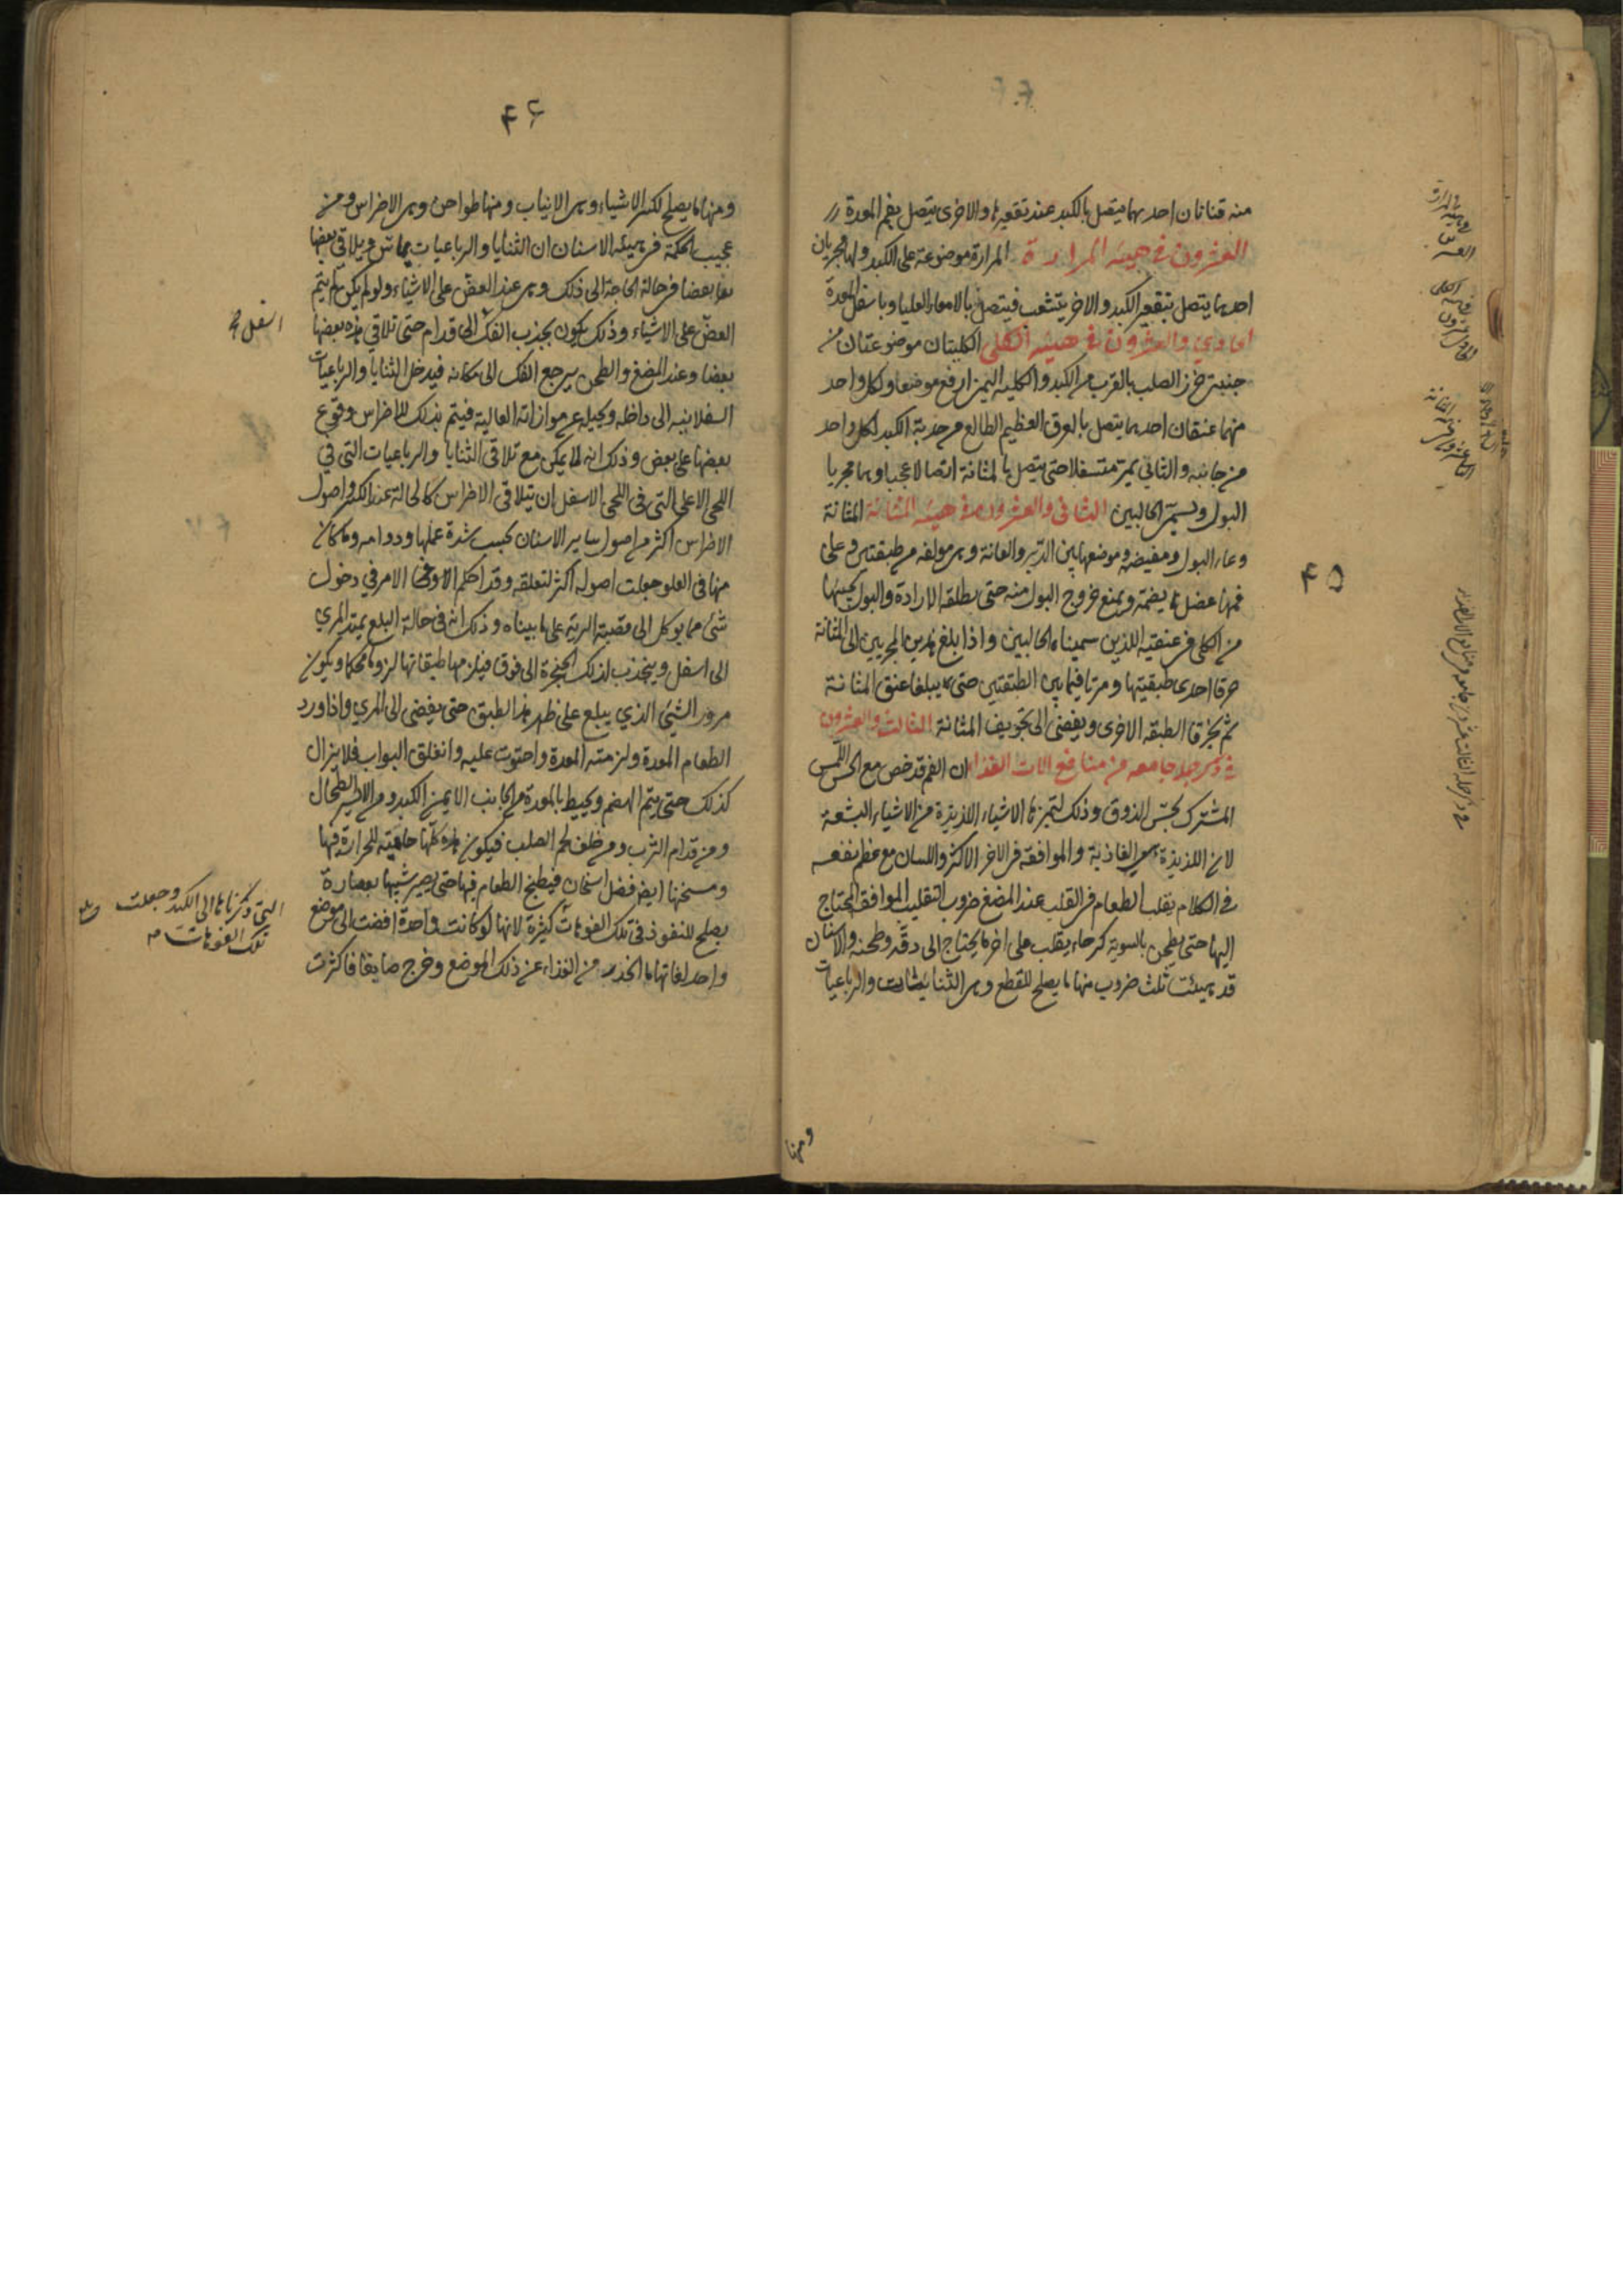 منه قناتان احديهما يتصل بالكبد عند تقعيرها والاخرى يتصل بفم المعدة
العشرون في هيئه المرارة المرارة موضوعة على الكبد ولها مجريان
احدهما يتصل بتقعير الكبد والاخر يتشعب فيتصل بالامعاء العليا وباسفل المعدة
الحادي والعشرون في هيئه الكلى الكليتان موضوعتان من
جنبتي خرز الصلب بالقرب من الكبد والكليه اليمنى ارفع موضعا ولكل واحد
منهما عنقان احدهما يتصل بالعرق العظيم الطالع من حدبة الكبد لكل واحد
من جانبه والثاني يمر متسفلا حتى يتصل بالمثانة اتصالا عجبا وهما مجريا
البول ويسمى الحالبين الثاني والعشرون في هيئه المثانة المثانة
وعاء البول ومفيضه وموضعها بين الدبر والعانة وهى مولفه من طبقتين وعلى
فمها عضل يضمه ويمنع خروج البول منه حتى يطلقه الارادة والبول يجيئها
من الكلى في عنقيه اللذين سميناهما الحالبين واذا بلغ هذين المجريين الى المثانة
خرقا احدى طبقتيها ومرتا فيما بين الطبقتين حتى يبلغا عنق المثانة
ثم يخرقا الطبقه الاخرى ويفضى الى تجويف المثانة الثالث والعشرون
في ذكر جمله جامعه من منافع الات الغذا ان الفم قد خص مع الحس اللمس
المشترك بحس الذوق وذلك لتميز بها الاشياء اللذيذة من الاشياء البشعة
لان اللذيذة هى الغاذية والموافقة في الاخر الاكثر واللسان مع عظم نفعه
في الكلام يقلب الطعام في القلب عند المضغ ضروب التقليب الموافقه المحتاج
اليها حتى يطحن بالسوية كرحاء يقلب على اخر ما يحتاج الى دقه وطحنه والاسنان
قد هيئت ثلث ضروب منها ما يصلح للقطع وهى الثنايا والرباعيات
ومنها
۴۵
۴۶
ومنها ما يصلح لكسر الاشياء وهى الانياب ومنها طواحن وهى الاضراس ومن
عجيب الحكمة في هيئه الاسنان ان الثنايا والرباعيات يماس ويلاقى بعضها
بعضا في حالة الحاجة الى ذلك وهى عند العض على الاشياء ولو لم يكن لم يتم
العض على الاشياء وذلك يكون بجذب الفك الى قدام حتى تلاقي هذه بعضها
بعضا وعند المضغ والطحن يرجع الفك الى مكانه فيدخل الثنايا والرباعيات
السفلانيه الى داخل ويحيد عن موازاة العالية فيتم بذلك للاضراس وقوع
بعضها على بعض وذلك انه لا يمكن مع تلاقى الثنايا والرباعيات التي في
اللحى الاعلى التى فى اللحى الاسفل ان يتلاقى الاضراس كالحالة عند الكسر واصول
الاضراس اكثر من اصول ساير الاسنان بحسب شدة عملها ودوامه وما كان
منها في العلو جعلت اصوله اكثر لتعلقه وقد احكم الامر في دخول
شئ مما يوكل الى قصبة الرية على ما بيناه وذلك انه في حالة البلع يمتد المري
الى اسفل وينجذب لذلك الحنجرة الى فوق فيلزمها طبقاتها لزوما محكما ويكون
مرور الشئ الذي يبلع على ظهر هذا الطبق حتى يفضى الى المري واذا ورد
الطعام المعدة ولزمته المعدة واحتوت عليه وانغلق البواب فلا يزال
كذلك حتى يتم الهضم ويحيط بالمعدة من الجانب الايمن الكبد ومن الايسر الطحال
ومن قدام الثرب ومن خلف لحم الصلب فيكون هذه كلها حافظة للحرارة فيها
ومسخنها ايضا فضل اسخان فيطبخ الطعام فيها حتى يصير شبيها بعصارة
يصلح للنفوذ فى تلك الفوهات كثيرة لانها لو كانت واحدة افضت الى موضع
واحد لفاتها ما انحدر من الغذاء عن ذلك الموضع وخرج ضايعا فاكثرت
اسفل
التي ذكرناها الى الكبد وجعلت
تلك الفوهات